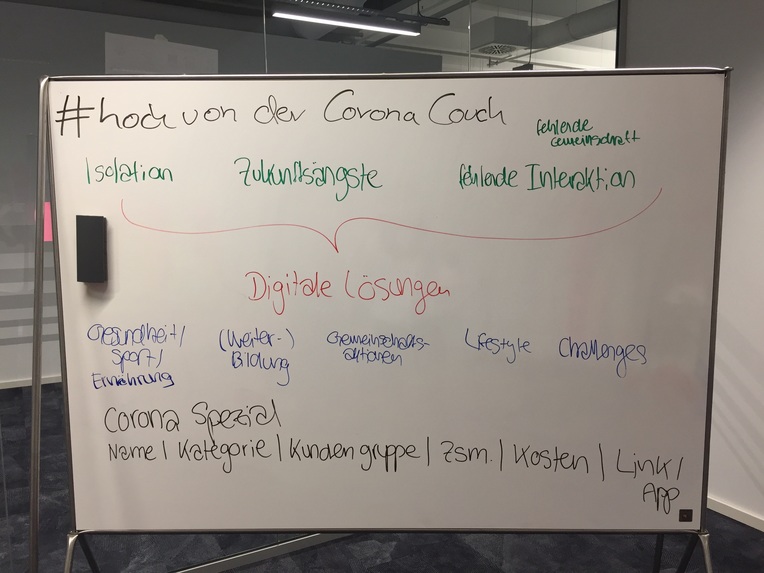 #hoch von der Corona Couch
fehlende
Gemeinschaft
Isolation Zukunftsängste fehlende Interaktion
Digitale Lösungen
Gesundheit/ (Weiter-) Gemeinschafts- Lifestyle Challenges
Sport/ Bildung aktionen
Ernährung
Corona Spezial
Name | Kategorie | Kundengruppe | Zsm. | Kosten | Link /
App